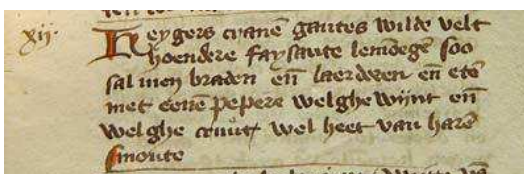 xij.
Reygers cranē gantes wilde velt
hoendere faysante lemdegē soo
sal men braden eñ laerdeen eñ etē
met eenē pepere welghe wijnt eñ
welghe cruut wel heet van harē
smoute